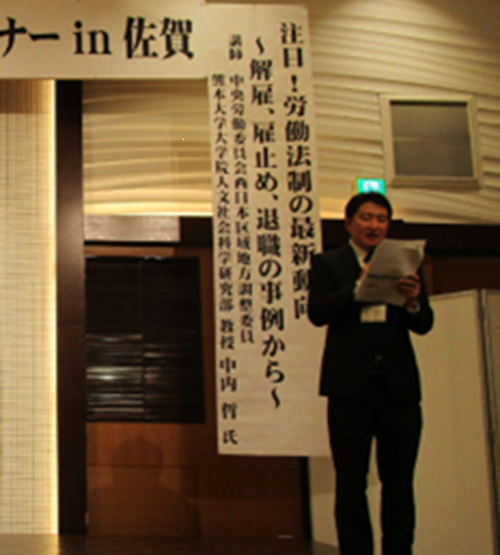 ナー in 佐賀
注目！労働法制の最新動向
〜解雇、雇止め、退職の事例から〜
講師 中央労働委員会西日本区域地方調整委員
熊本大学大学院人文社会科学研究部 教授 中内 哲 氏